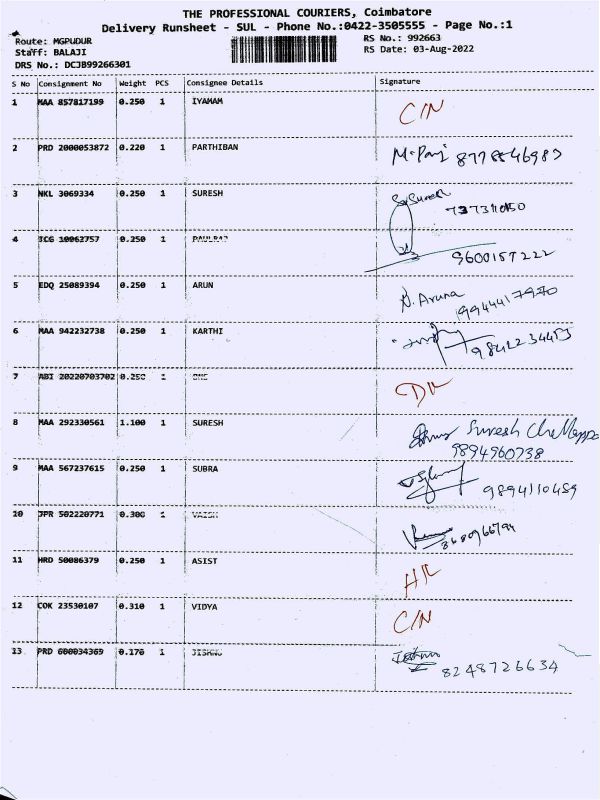 THE PROFESSIONAL COURIERS, Coimbatore
Delivery Runsheet - SUL - Phone No.:0422-3505555 - Page No.:1
Route: MGPUDUR RS No.: 992663
Staff: BALAJI RS Date: 03-Aug-2022
DRS No.: DCJB99266301
S No Consignment No Weight PCS Consignee Details Signature
1 MAA 857817199 0.250 1 IYAMAM C/N
2 PRD 2000053872 0.220 1 PARTHIBAN
3 NKL 3069334 0.250 1 SURESH Suresh
4 TCG 10062757 0.250 1 PAULRAJ 9600157222
5 EDQ 25089394 0.250 1 ARUN D. Aruna 9944417970
6 MAA 942232738 0.250 1 KARTHI 9842234453
7 ABI 20220703702 0.250 1 D/L
8 MAA 292330561 1.100 1 SURESH Suresh
9894960738
9 MAA 567237615 0.250 1 SUBRA 9894110459
10 JPR 502220771 0.300 1 VAISH 8680966794
11 HRD 50086379 0.250 1 ASIST H/L
12 COK 23530107 0.310 1 VIDYA C/N
13 PRD 600034369 0.170 1 JISHNU 8248726634